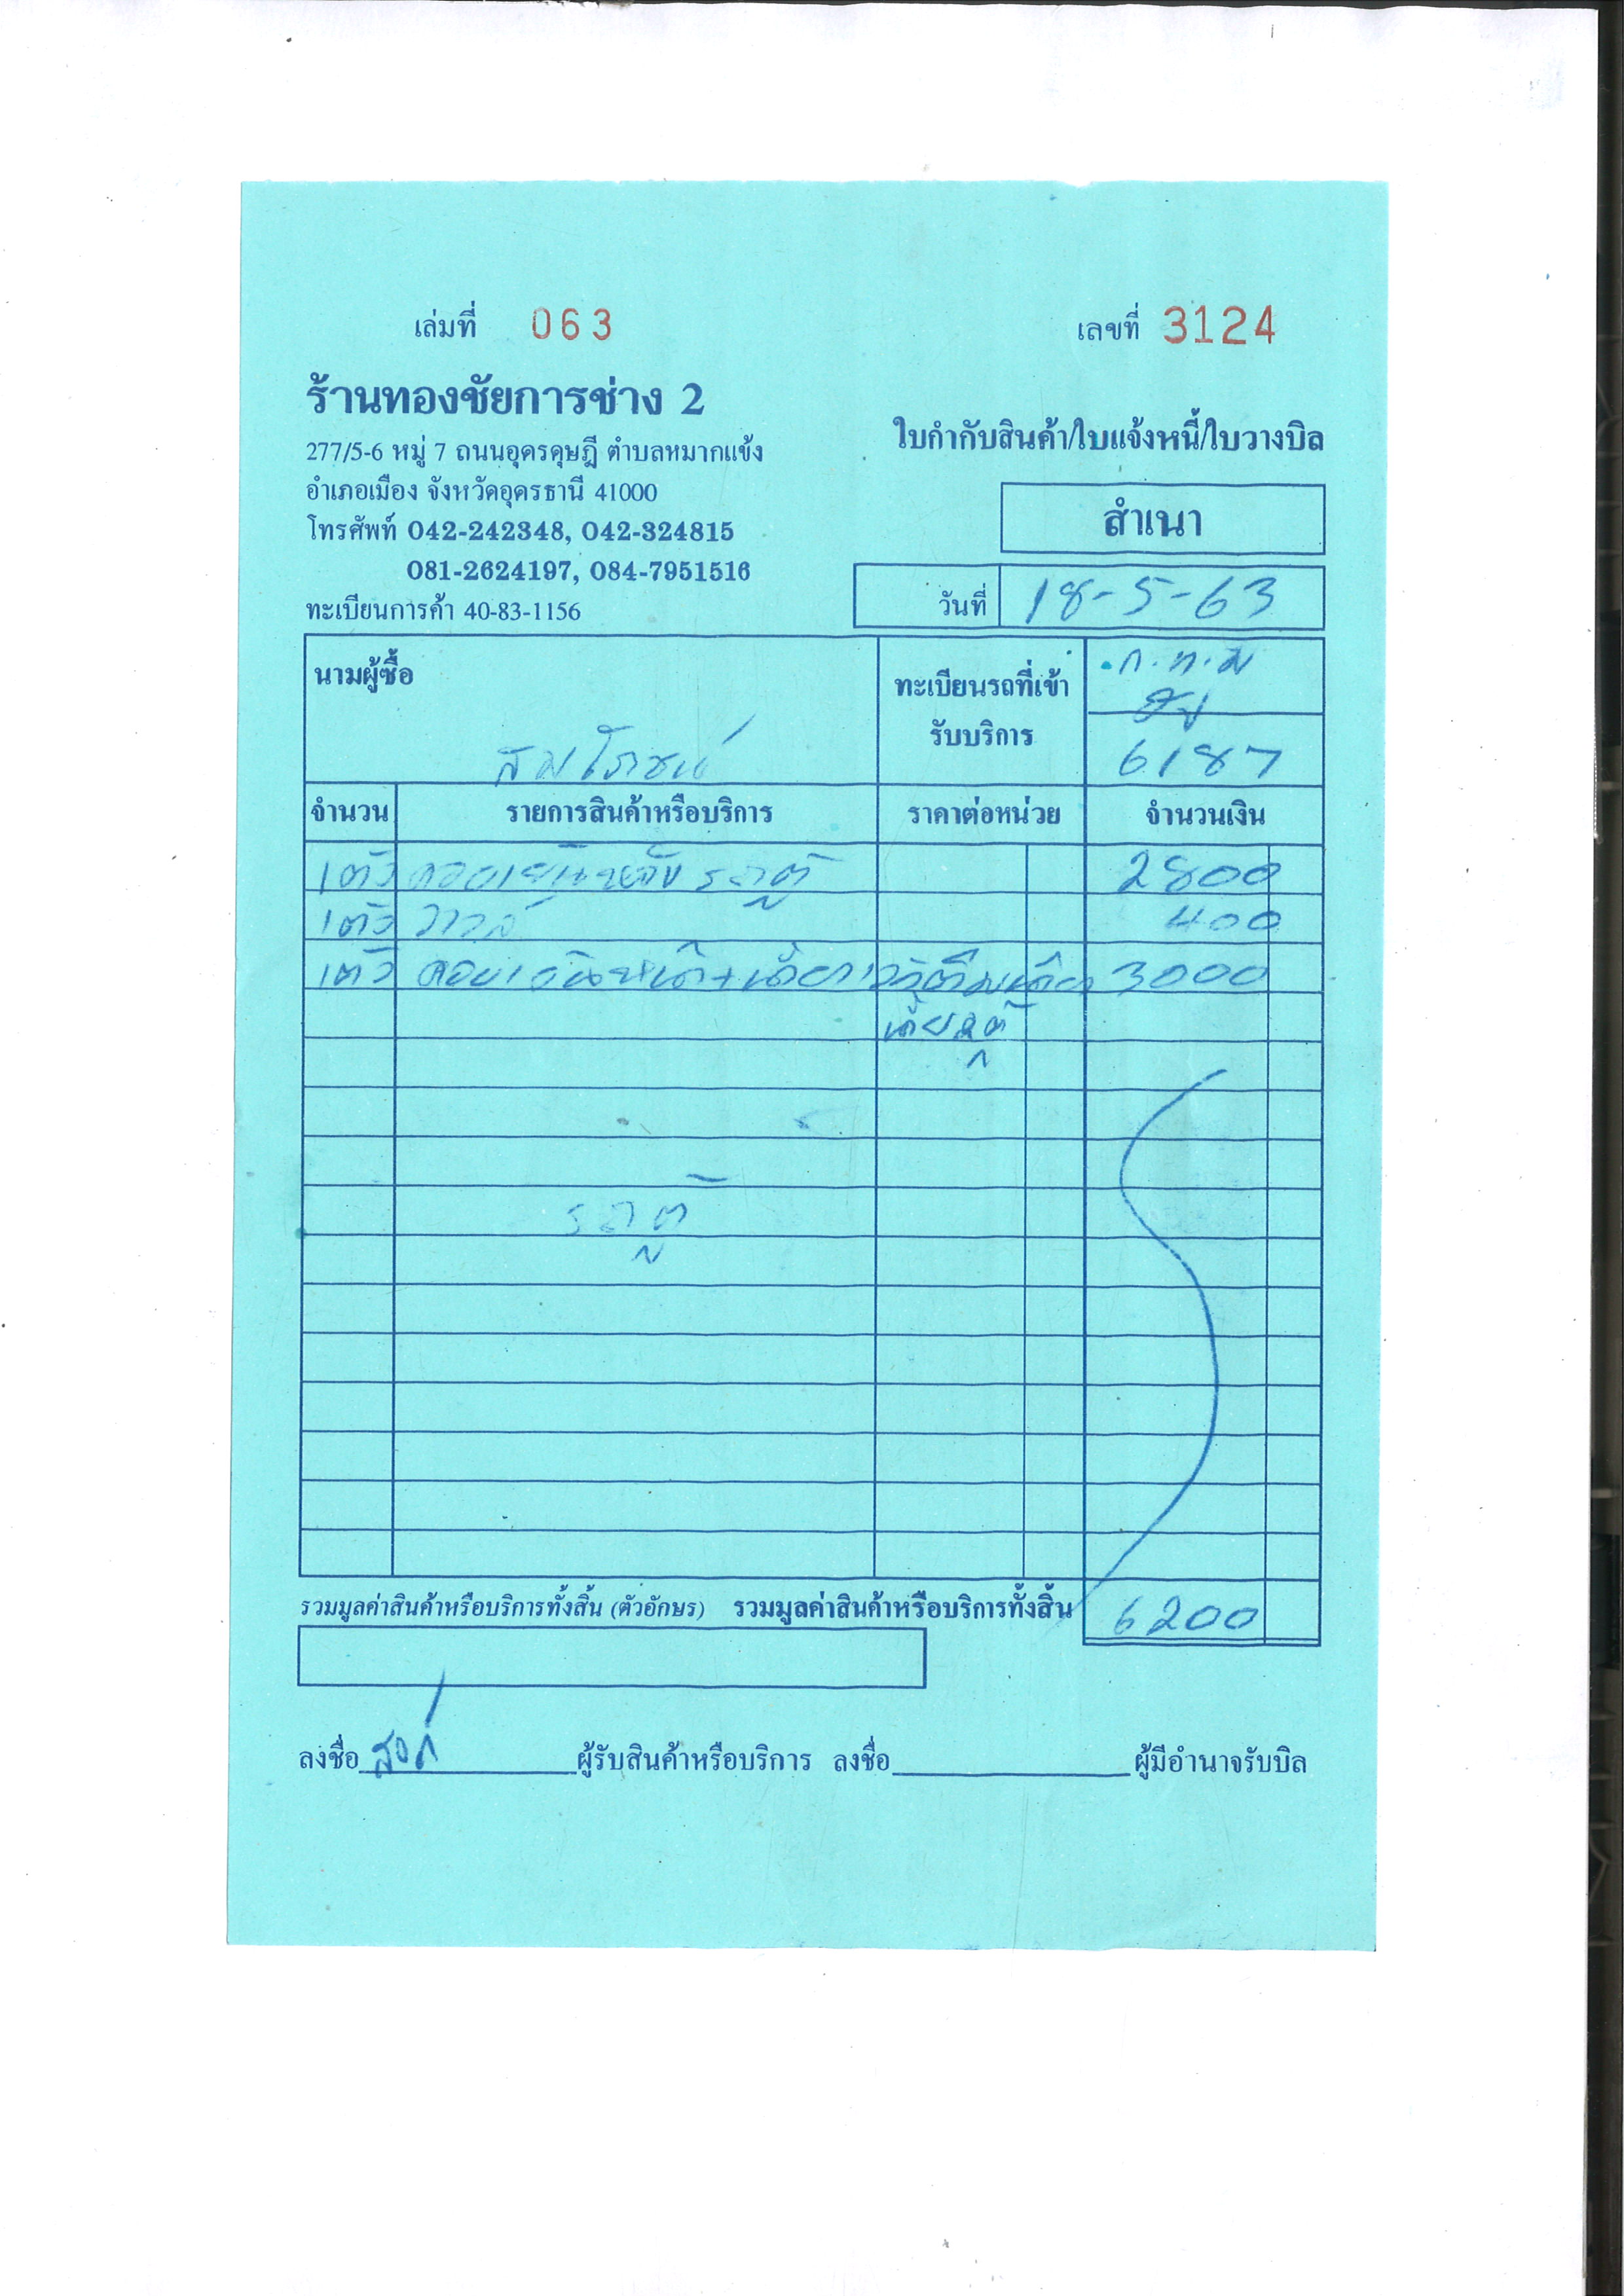 เล่มที่ 063 เลขที่ 3124
ร้านทองชัยการช่าง 2
ใบกำกับสินค้า/ใบแจ้งหนี้/ใบวางบิล
277/5-6 หมู่ 7 ถนนอุดรดุษฎี ตำบลหมากแข้ง
อำเภอเมือง จังหวัดอุดรธานี 41000
สำเนา
โทรศัพท์ 042-242348, 042-324815
081-2624197, 084-7951516
วันที่ 18-5-63
ทะเบียนการค้า 40-83-1156
นามผู้ซื้อ ทะเบียนรถที่เข้า ก.ท.ม
รับบริการ
สมโภชน์ 6187
จำนวน รายการสินค้าหรือบริการ ราคาต่อหน่วย จำนวนเงิน
1 ตัว คอยเย็นหลัง รถตู้ 2800
1 ตัว วาล์ว 400
1 ตัว 3000
รถตู้
รวมมูลค่าสินค้าหรือบริการทั้งสิ้น (ตัวอักษร) รวมมูลค่าสินค้าหรือบริการทั้งสิ้น 6200
ลงชื่อ ผู้รับสินค้าหรือบริการ ลงชื่อ ผู้มีอำนาจรับบิล